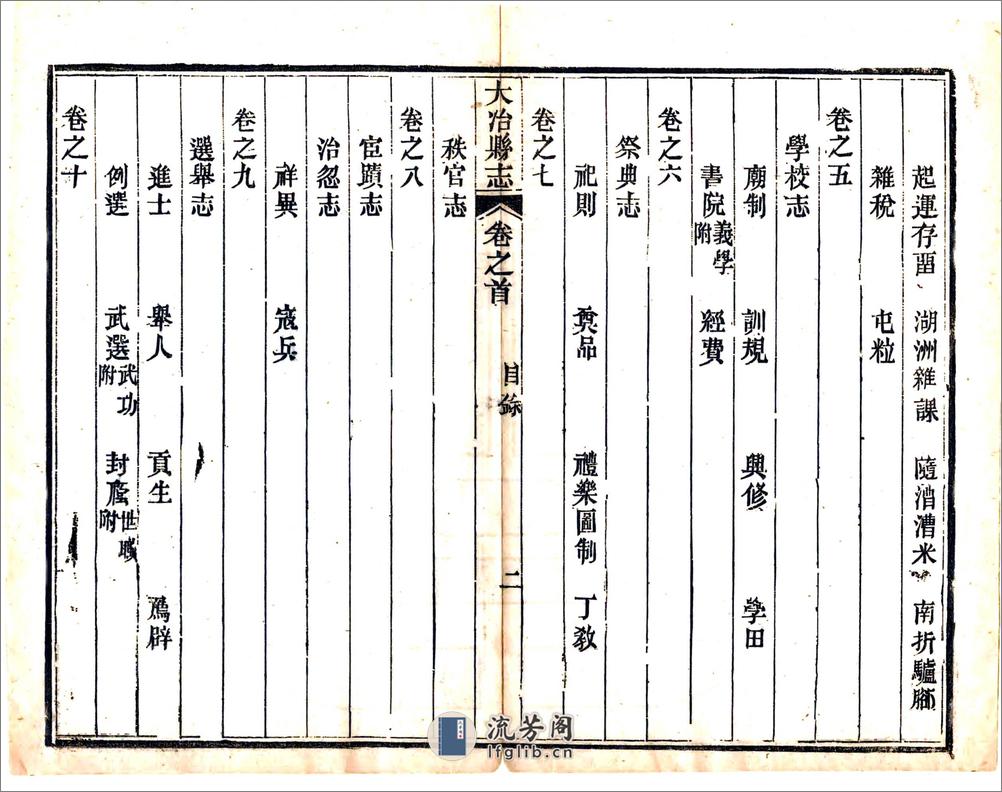 起運存畱 湖洲雜課 隨漕漕米 南折驢腳
雜稅 屯粒
卷之五
學校志
廟制 訓規 興修 學田
書院義學附 經費
卷之六
祭典志
祀則 奠品 禮樂圖制 丁敎
卷之七
大冶縣志 卷之首 目錄 二
秩官志
卷之八
宦蹟志
治忽志
祥異 寇兵
卷之九
選舉志
進士 舉人 貢生 薦辟
例選 武選武功附 封廕世職附
卷之十
流芳阁
lfglib.cn